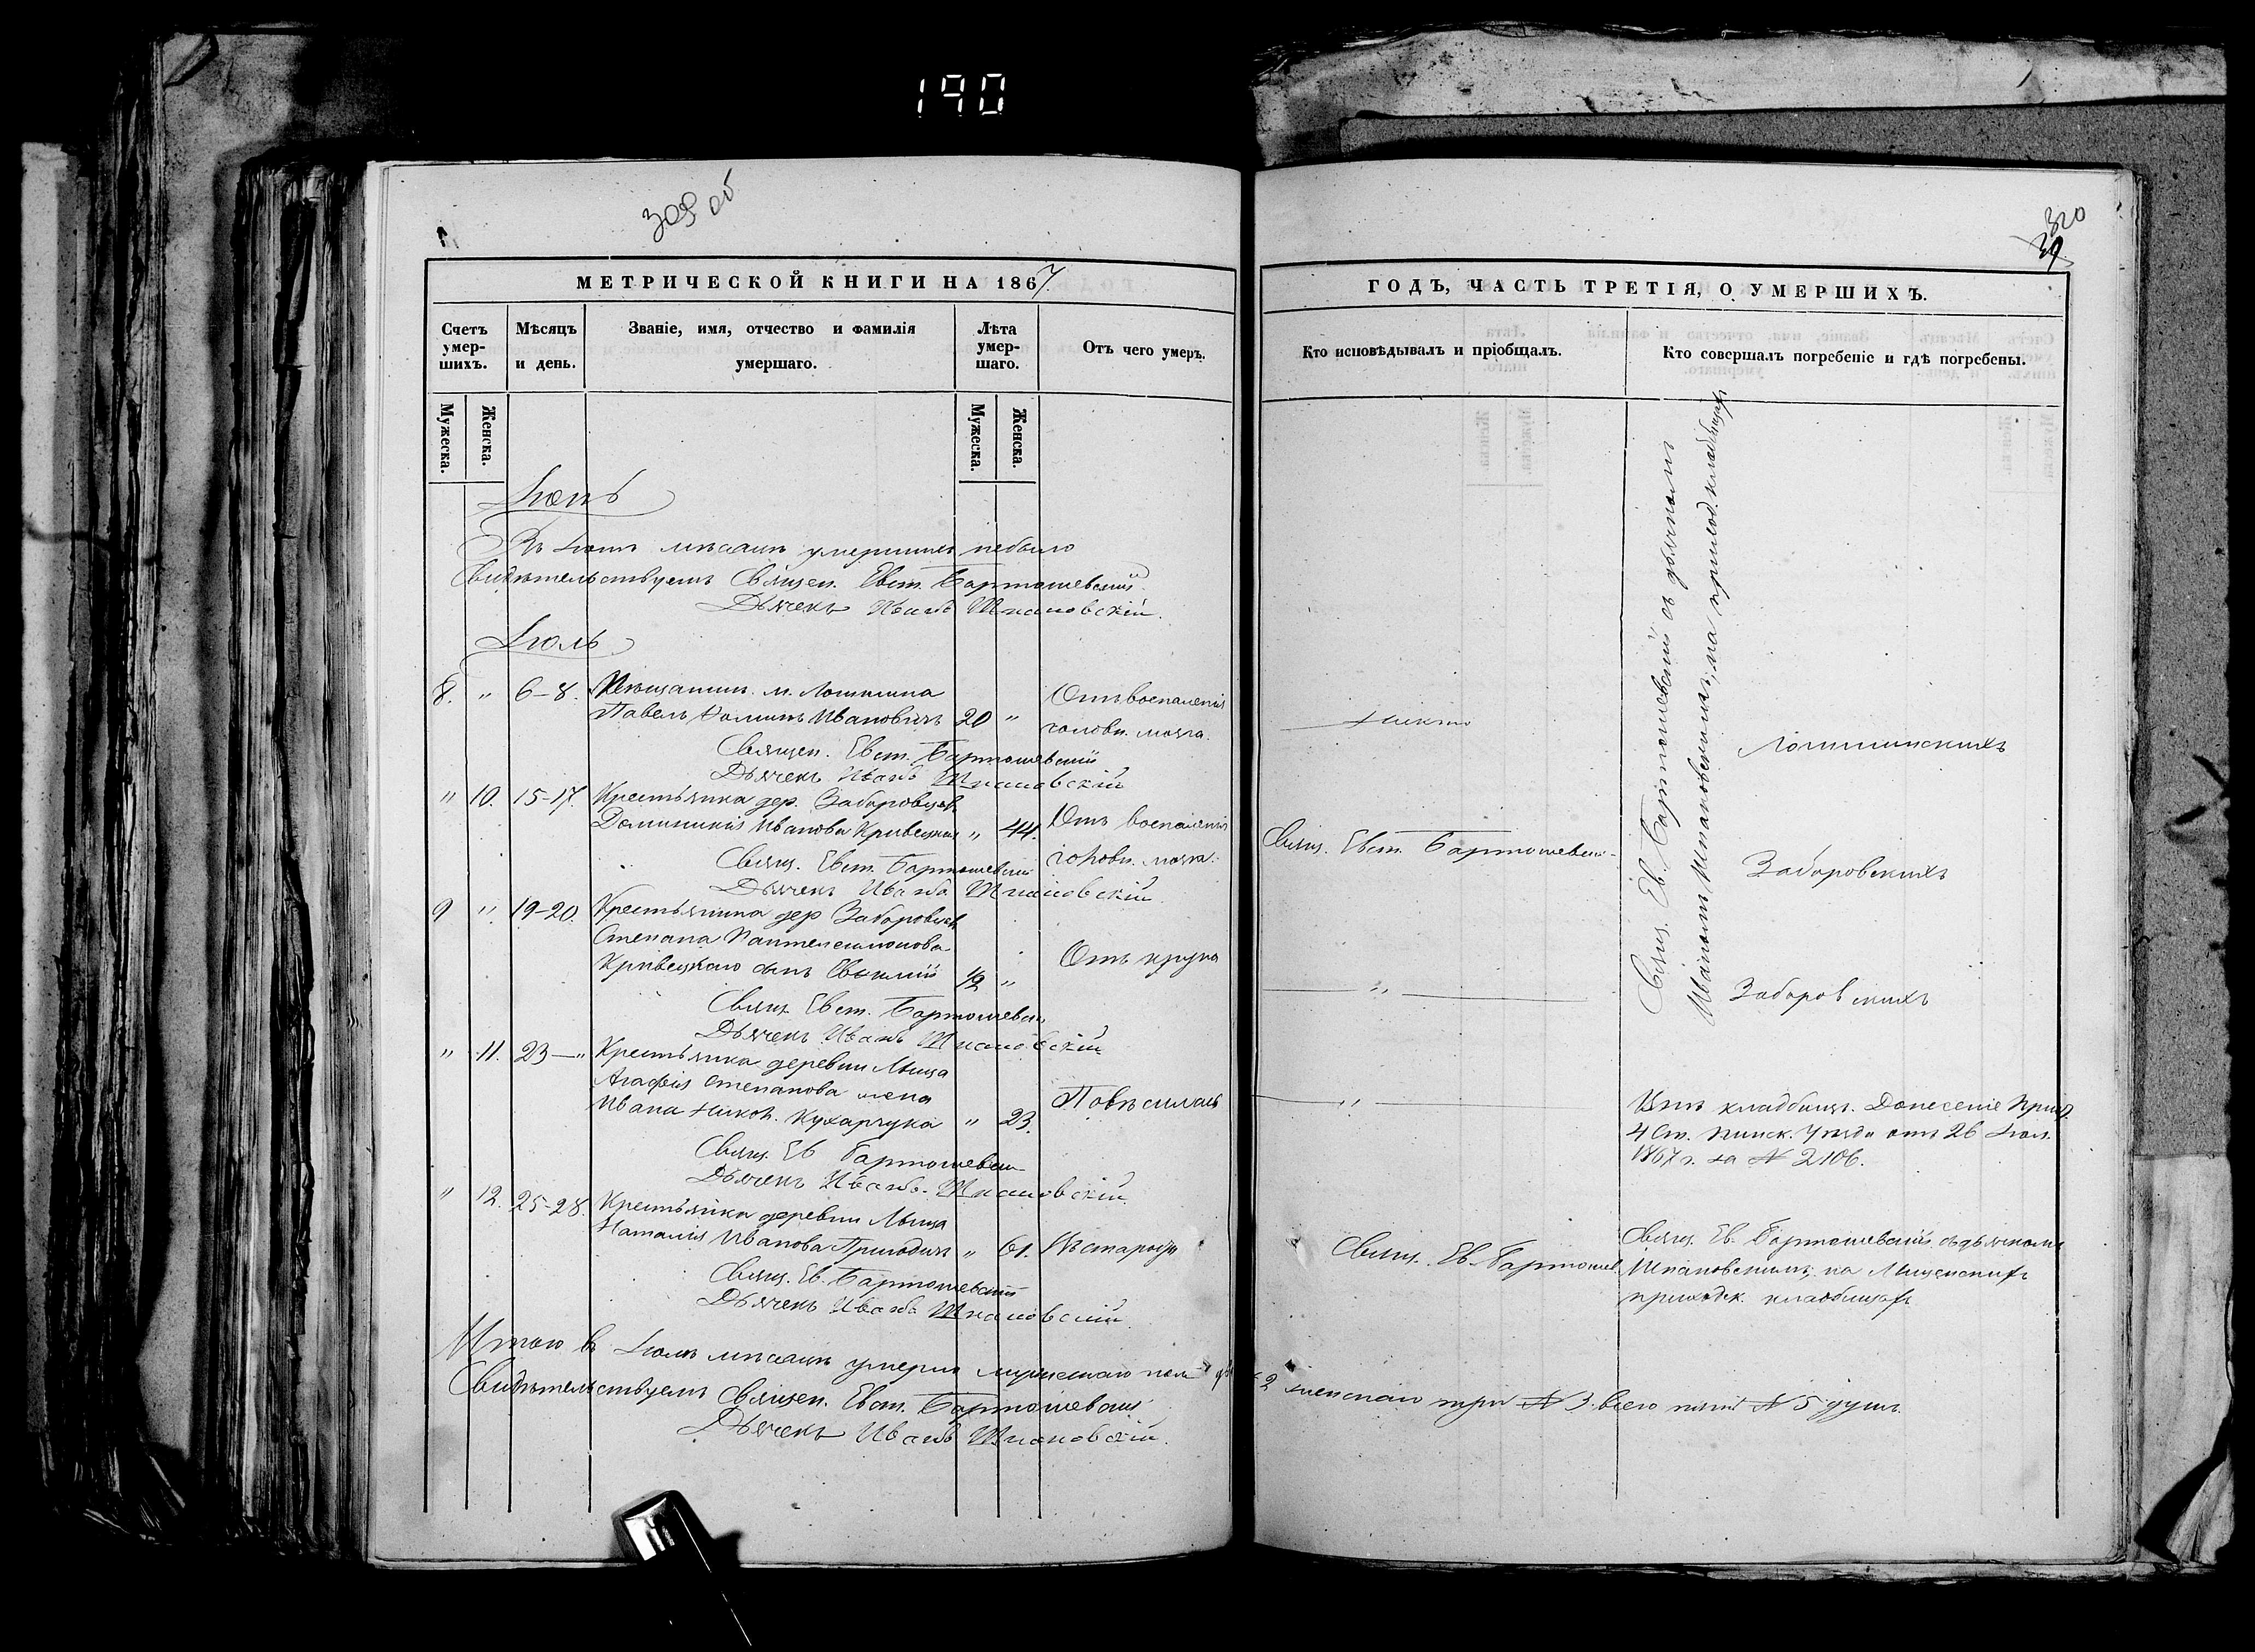 190
309 об
МЕТРИЧЕСКОЙ КНИГИ НА 1867
Счетъ умер-шихъ.
Мѣсяцъ и день.
Званіе, имя, отчество и фамилія умершаго.
Лѣта умер-шаго.
Отъ чего умеръ.
Мужеска.
Женска.
Мужеска.
Женска.
Іюнь
Въ Іюнѣ мѣсяцѣ умершихъ небыло
Свидѣтельствуемъ Священ. Евст. Бартошевскій
Дьячекъ Иванъ Шпаковскій.
Іюль
8. " 6-8. Мѣщанинъ м. Логишина
Павелъ Ивановичъ 20 " Отъ воспаленія
головн. мозга.
Священ. Евст. Бартошевскій
Дьячекъ Иванъ Шпаковскій
" 10. 15-17. Крестьянка дер. Заборовцевъ
Доминикія Иванова Кривецкая " 44. Отъ воспаленія
головн. мозга.
Свящ. Евст. Бартошевскій
Дьячекъ Иванъ Шпаковскій.
9 " 19-20. Крестьянина дер Заборовцевъ
Степана Пантелеимонова
Кривецкаго сынъ 1/2 " Отъ крупа
Свящ. Евст. Бартошевскій
Дьячекъ Иванъ Шпаковскій
" 11. 23-" Крестьянка деревни Мыща
Агафія Степанова жена
Ивана Никол. Кухарчука " 23. Повѣсилась
Свящ. Ев Бартошевскій
Дьячекъ Иванъ Шпаковскій.
" 12. 25-28. Крестьянка деревни Мыща
Наталія Иванова Приходичъ " 61. Въ старости
Свящ. Ев. Бартошевскій
Дьячекъ Иванъ Шпаковскій.
Итого въ Іюлѣ мѣсяцѣ умерло мужескаго пола
Свидѣтельствуемъ Священ. Евст. Бартошевскій
Дьячекъ Иванъ Шпаковскій.
320
ГОДЪ, ЧАСТЬ ТРЕТІЯ, О УМЕРШИХЪ.
Кто исповѣдывалъ и пріобщалъ.
Кто совершалъ погребеніе и гдѣ погребены.
Свящ. Ев. Бартошевскій съ дьячкомъ
Иваномъ Шпаковскимъ, на приход. кладбищахъ
Никто
Логишинскихъ
Свящ. Евст. Бартошевскі-
Заборовскихъ
"
Заборовскихъ
"
Внѣ кладбищъ. Донесеніе
4 Ст. Пинск. Уѣзда отъ 26 Іюл.
1867 г. за № 2106.
Свящ. Ев. Бартошев.
Свящ. Ев. Бартошевскій съ дьячкомъ
Шпаковскимъ, на Мыщенскихъ
приходск. кладбищахъ
2 женскаго три № 3. всего пять № 5 душъ.